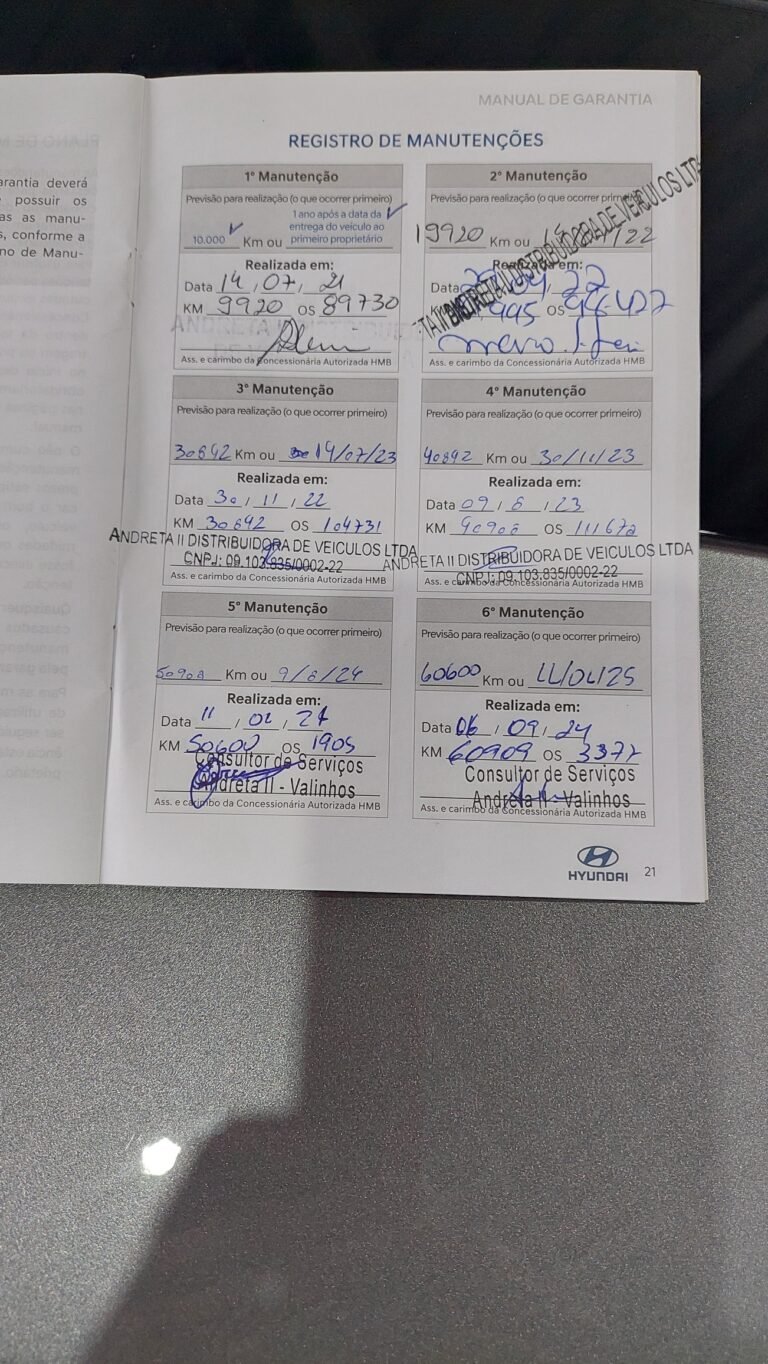 MANUAL DE GARANTIA
REGISTRO DE MANUTENÇÕES
arantia deverá
possuir os
as as manu-
s, conforme a
no de Manu-
1º Manutenção
Previsão para realização (o que ocorrer primeiro)
10.000 Km ou 1 ano após a data da
entrega do veículo ao
primeiro proprietário
Realizada em:
Data 14, 07, 21
KM 9920 OS 89730
Ass. e carimbo da Concessionária Autorizada HMB
2º Manutenção
Previsão para realização (o que ocorrer primeiro)
19920 Km ou 22
ANDRETA II DISTRIBUIDORA DE VEICULOS LTDA
Realizada em:
Data 22
KM OS
Ass. e carimbo da Concessionária Autorizada HMB
3º Manutenção
Previsão para realização (o que ocorrer primeiro)
30892 Km ou 14/07/23
Realizada em:
Data 30, 11, 22
KM 30892 OS 104731
ANDRETA II DISTRIBUIDORA DE VEICULOS LTDA
CNPJ: 09.103.835/0002-22
Ass. e carimbo da Concessionária Autorizada HMB
4º Manutenção
Previsão para realização (o que ocorrer primeiro)
40892 Km ou 30/11/23
Realizada em:
Data 09, 8, 23
KM 40908 OS 111672
ANDRETA II DISTRIBUIDORA DE VEICULOS LTDA
CNPJ: 09.103.835/0002-22
Ass. e carimbo da Concessionária Autorizada HMB
5º Manutenção
Previsão para realização (o que ocorrer primeiro)
50908 Km ou 9/8/24
Realizada em:
Data 11, 01, 24
KM 50600 OS 1905
Consultor de Serviços
Andreta II - Valinhos
Ass. e carimbo da Concessionária Autorizada HMB
6º Manutenção
Previsão para realização (o que ocorrer primeiro)
60600 Km ou 11/01/25
Realizada em:
Data 06, 09, 24
KM 60909 OS 3377
Consultor de Serviços
Andreta II - Valinhos
Ass. e carimbo da Concessionária Autorizada HMB
HYUNDAI 21